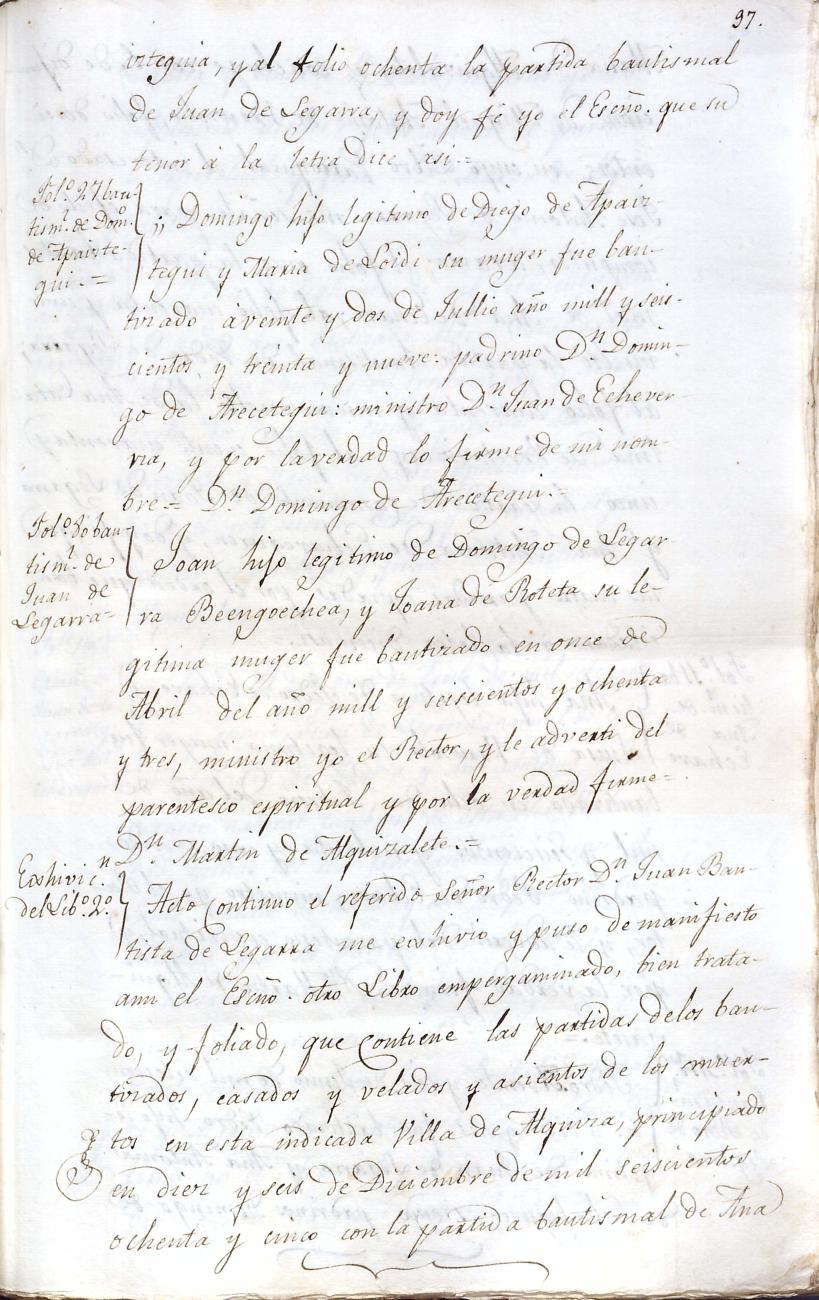 97.
izteguia, y al folio ochenta la partida bautismal
de Juan de Legarra, y doy fé yo el Escño. que su
tenor á la letra dice asi.=
Fol.º 27 bau-
tism.l de Dom.º
de Apaizte-
gui.=
,, Domingo hijo legitimo de Diego de Apaiz-
tegui y Maria de Loidi su muger fue bau-
tizado á veinte y dos de Jullio año mill y seis-
cientos y treinta y nueve: padrino D.n Domin-
go de Arecetegui: ministro D.n Juan de Echever-
ria, y por la verdad lo firme de mi nom-
bre= D.n Domingo de Arecetegui.=
Fol.º 80 bau-
tism.l de
Juan de
Legarra=
Joan hijo legitimo de Domingo de Legar-
ra Beengoechea, y Joana de Roteta su le-
gitima muger fue bautizado en once de
Abril del año mill y seiscientos y ochenta
y tres, ministro yo el Rector, y le adverti del
parentesco espiritual y por la verdad firme=
D.n Martin de Alquizalete.=
Exhivic.n
del Lib.º 2.º
Acto continuo el referido Señor Rector D.n Juan Bau-
tista de Legarra me exhivio y puso de manifiesto
ami el Escño. otro Libro empergaminado, bien trata-
do, y foliado, que contiene las partidas delos bau-
tizados, casados y velados y asientos de los muer-
tos en esta indicada Villa de Alquiza, principiado
en diez y seis de Diciembre de mil seiscientos
ochenta y cinco con la partida bautismal de Ana